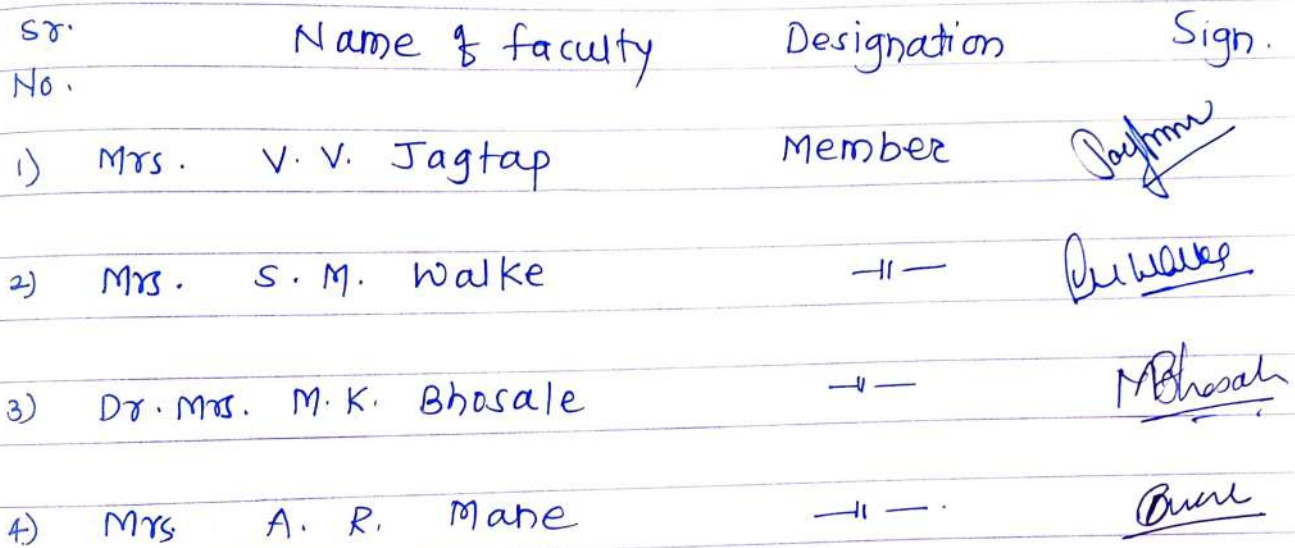 Sr. Name of faculty Designation Sign.
No.
1) Mrs. V. V. Jagtap Member
2) Mrs. S. M. Walke —||—
3) Dr. Mrs. M. K. Bhosale —||— MBhosale
4) Mrs A. R. Mane —||—.